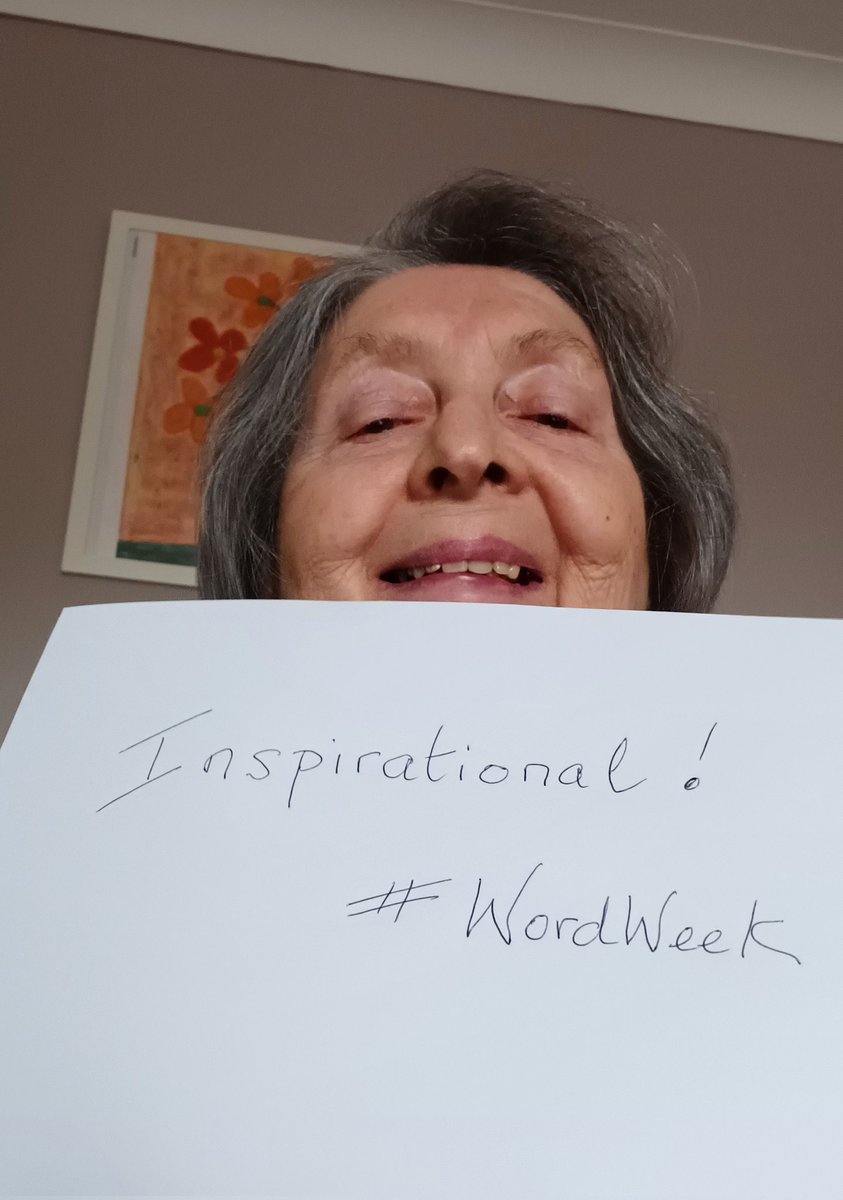 Inspirational!
#WordWeek